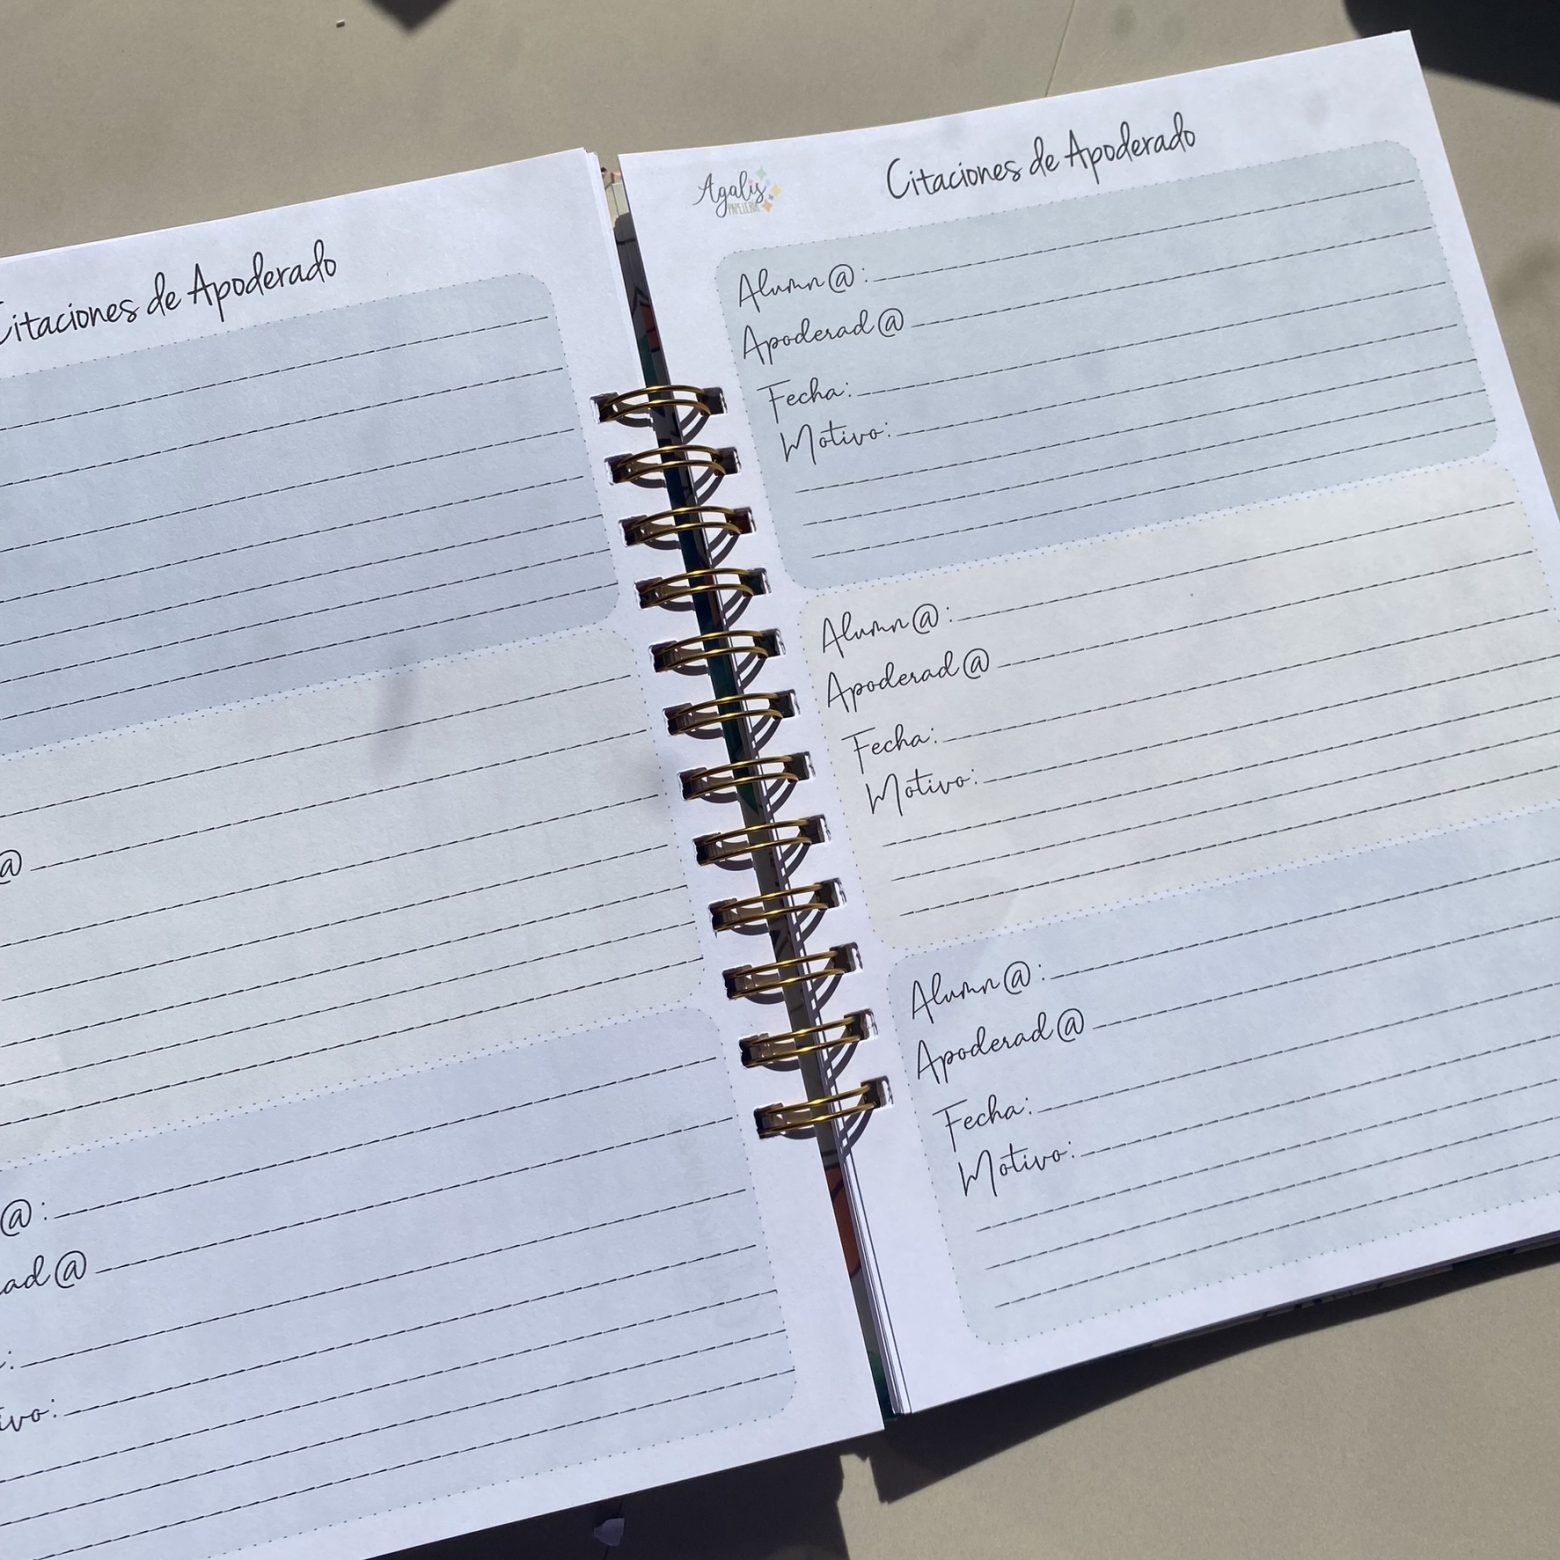 Citaciones de Apoderado
@
@:
ad@
:
ivo:
Agalis
PAPELERIA
Citaciones de Apoderado
Alumn@:
Apoderad@
Fecha:
Motivo:
Alumn@:
Apoderad@
Fecha:
Motivo:
Alumn@:
Apoderad@
Fecha:
Motivo: